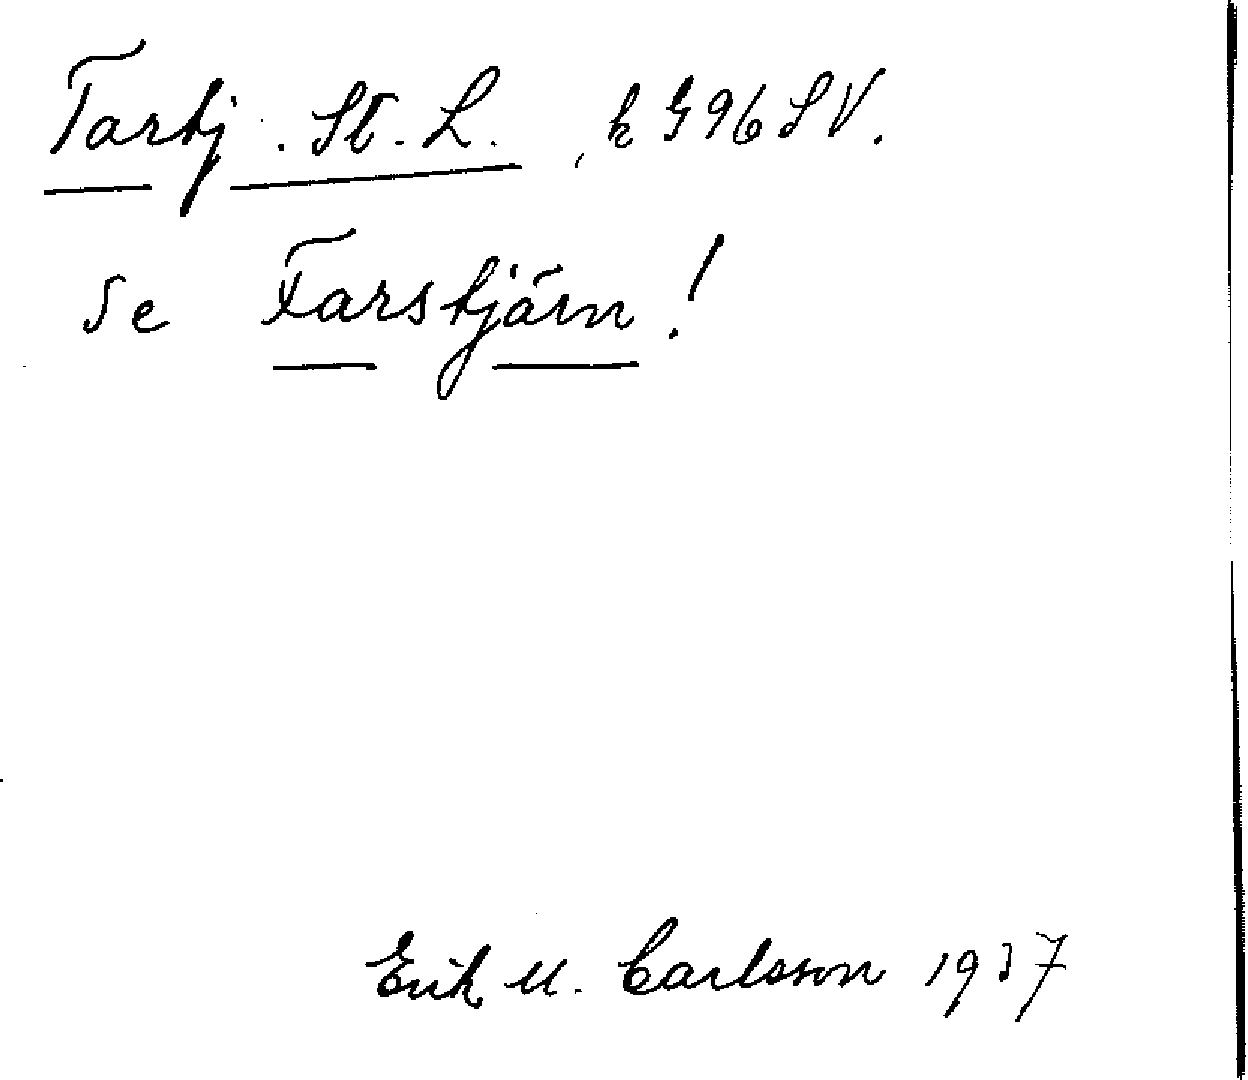 Tartj. St. L. , k G96SV.
Se Tarstjärn!
Erik M. Carlsson 1937